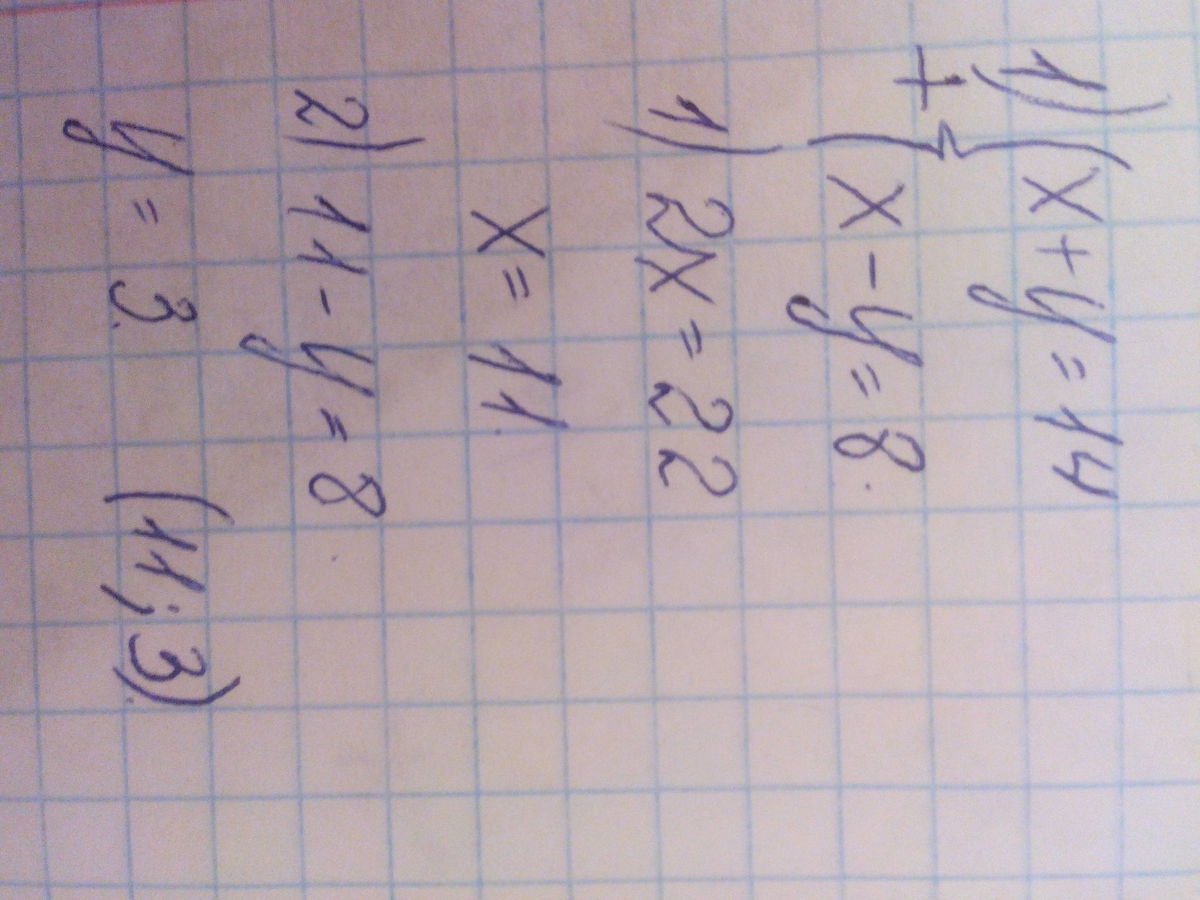 1) { x + y = 14
+ { x - y = 8.
1) 2x = 22
x = 11.
2) 11 - y = 8
y = 3. (11; 3).